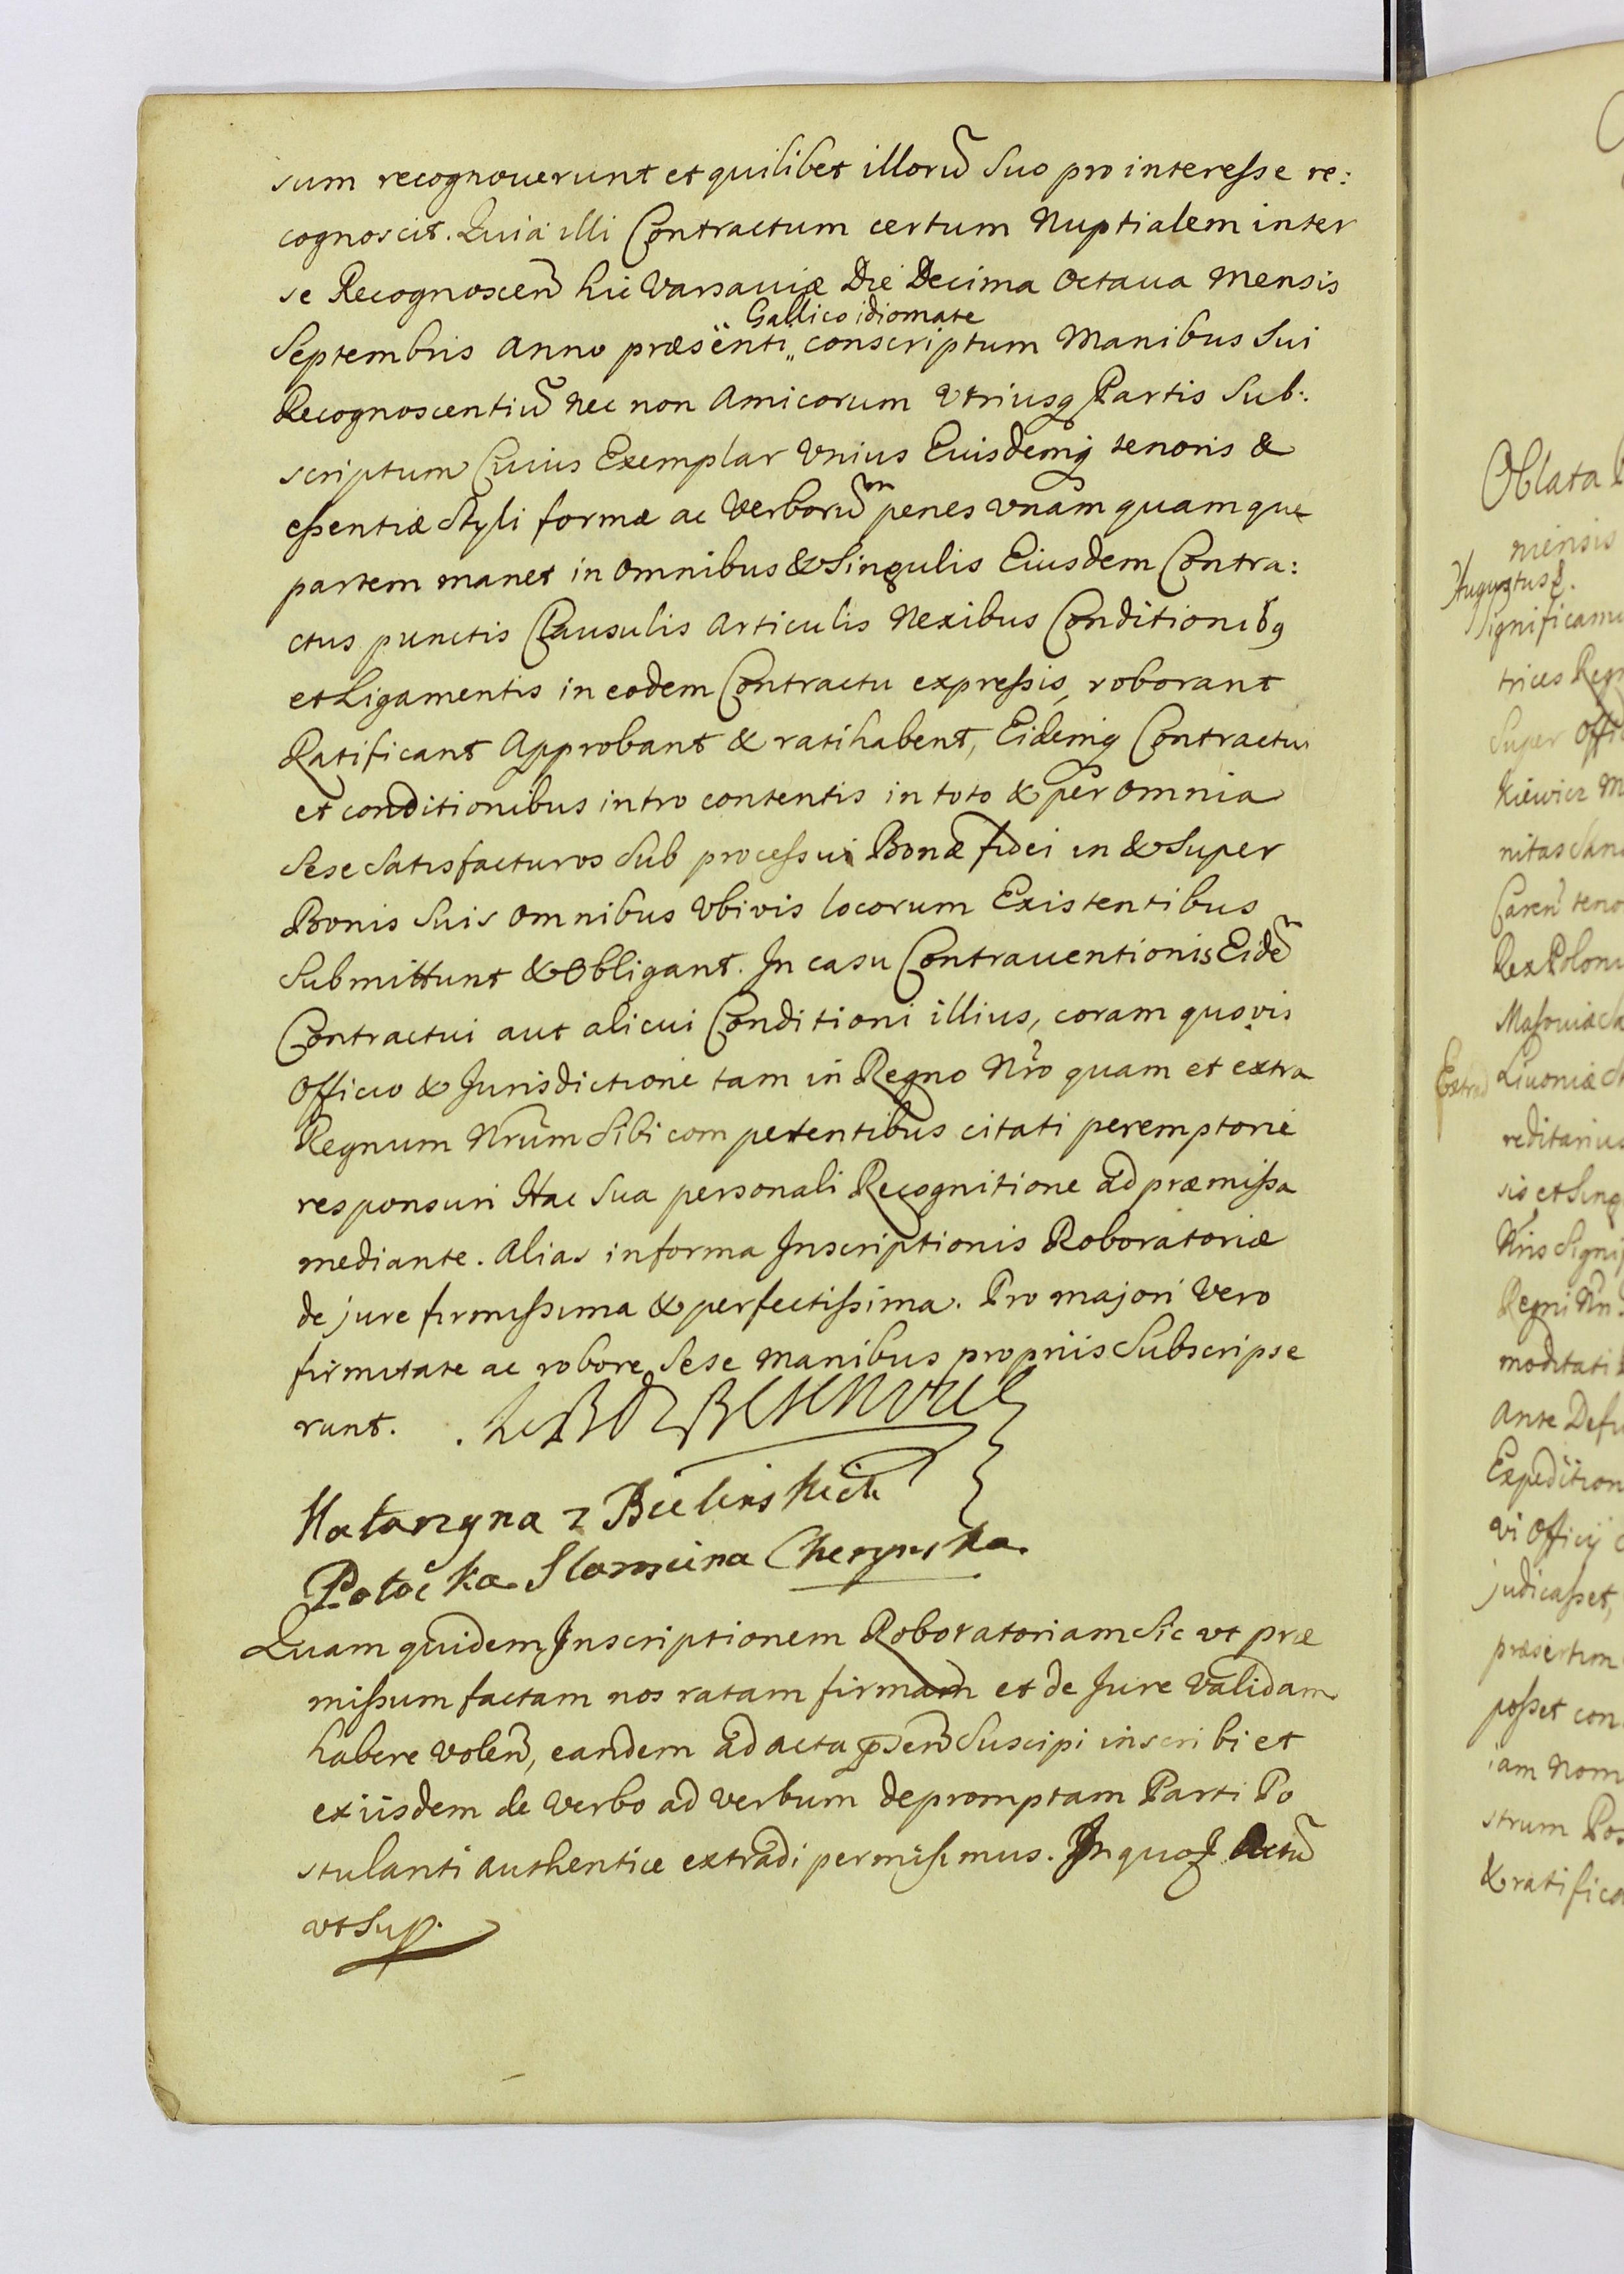 sum recognouerunt et quilibet illorū Suo pro interesse re:
cognoscit. Quia illi Contractum certum Nuptialem inter
se Recognoscen̄ hic Varsauiæ Die Decima Octaua Mensis
Gallico idiomate
Septembris Anno præsenti „ conscriptum Manibus Sui
Recognoscentiū Nec non Amicorum Vtriusq Partis Sub:
scriptum Cuius Exemplar Vnius Euisdemq tenoris &
essentiæ Styli formæ ac Verborū penes vnam quamque
partem manet in Omnibus & Singulis Eiusdem Contra:
ctus punctis Clausulis Articulis Nexibus Conditionibq
et Ligamentis in eodem Contractu expressis, roborant
Ratificant Approbant & ratihabent, Eidemq Contractui
et conditionibus intro contentis in toto & per Omnia
Sese Satisfacturos Sub processu Bonæ fidei in & Super
Bonis Suis Omnibus Vbivis locorum Existentibus
Submittunt & Obligant. In casu Contrauentionis Eidē
Contractui aut alicui Conditioni illius, coram quovis
Officio & Jurisdictione tam in Regno Nro quam et extra
Regnum Nrum Sibi competentibus citati peremptorie
responsuri Hac Sua personali Recognitione ad præmissa
mediante. Alias in forma Inscriptionis Roboratoriæ
de jure firmissima & perfectissima. Pro majori Vero
firmitate ac robore Sese Manibus propriis Subscripse
runt.
Katarzyna z Bielinskich
Potocka Staroscina Cherzynska
Quam quidem Inscriptionem Roboratoriam Sic vt præ
missum factam nos ratam firmam et de Jure Validam
habere volen̄, eandem ad acta p̄sen̄ Suscipi inscribi et
ex iisdem de Verbo ad Verbum depromptam Parti Po
stulanti Authentice extradi permisimus. In quoꝝ Actū
vt Sup.
Oblata
mensis
Augustus
significamu
trices Regn
Super Offic
kiewicz M
nitas
Caren̄ teno
Rex Poloni
Masouiæ Sa
Extrad
Liuoniæ
reditarius
sis et Sing
Nris Signif
Regni Nri
moditati
Ante Defu
Expedition
vi Officij
judicasset,
præsertim
posset con
iam Nom
strum Pos
& ratifica